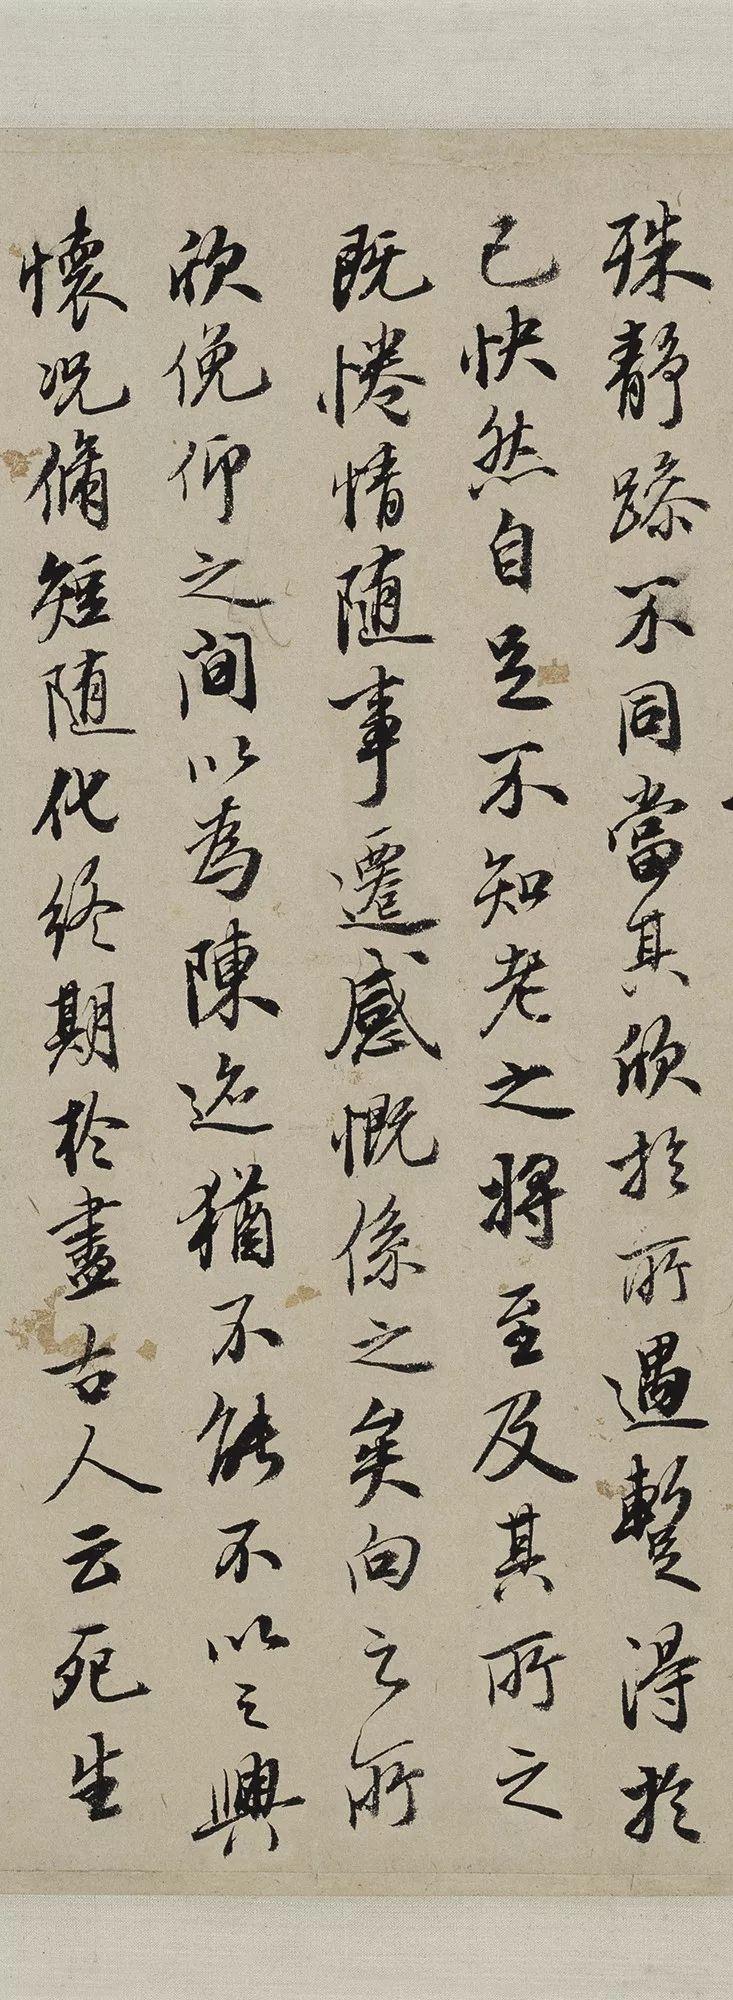 殊静躁不同當其欣於所遇蹔得於
己怏然自足不知老之將至及其所之
既惓情随事遷感慨係之矣向之所
欣俛仰之間以為陳迹猶不能不以之興
懷况脩短随化終期於盡古人云死生